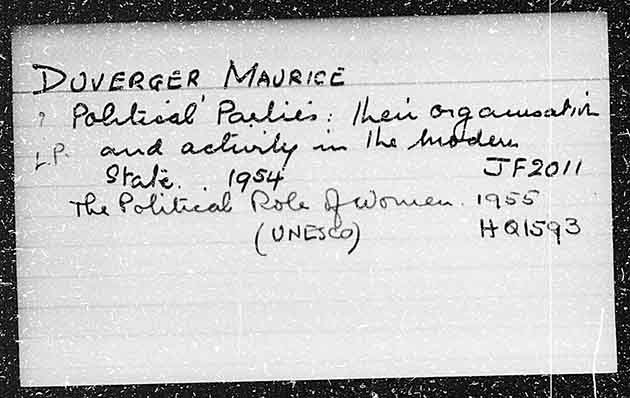 DUVERGER MAURICE
? Political Parties: their organisation
L.P. and activity in the modern
State. 1954 JF2011
The Political Role of Women. 1955
(UNESCO) HQ1593